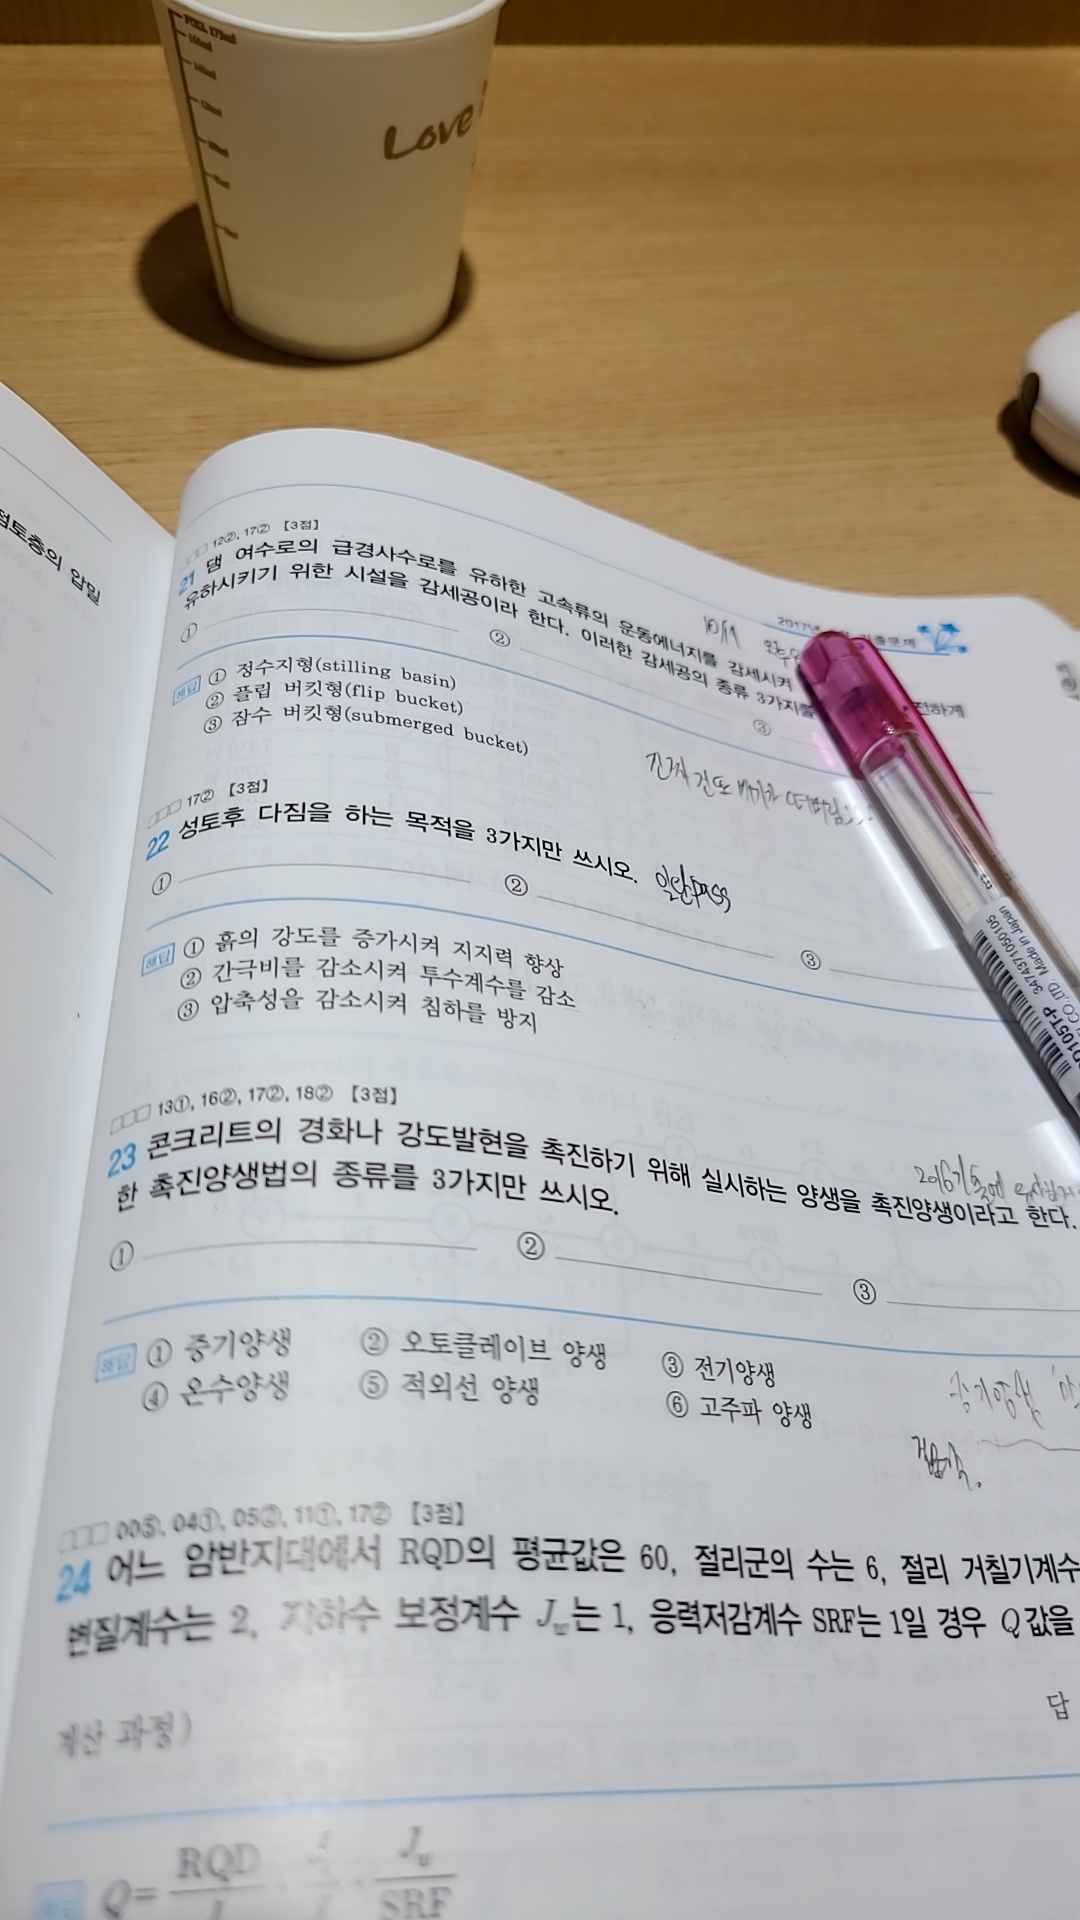 Love
점토층의 압밀
12②, 17② 【3점】
21 댐 여수로의 급경사수로를 유하한 고속류의 운동에너지를 감세시켜
전하게
유하시키기 위한 시설을 감세공이라 한다. 이러한 감세공의 종류 3가지를
① ② ③
10/19
해답 ① 정수지형(stilling basin)
② 플립 버킷형(flip bucket)
③ 잠수 버킷형(submerged bucket)
□□□ 17② 【3점】
22 성토후 다짐을 하는 목적을 3가지만 쓰시오. 일단pass
① ② ③
해답 ① 흙의 강도를 증가시켜 지지력 향상
② 간극비를 감소시켜 투수계수를 감소
③ 압축성을 감소시켜 침하를 방지
3474371050105
Made in Japan
□□□ 13①, 16②, 17②, 18② 【3점】
23 콘크리트의 경화나 강도발현을 촉진하기 위해 실시하는 양생을 촉진양생이라고 한다.
한 촉진양생법의 종류를 3가지만 쓰시오.
① ② ③
해답 ① 증기양생 ② 오토클레이브 양생 ③ 전기양생
④ 온수양생 ⑤ 적외선 양생 ⑥ 고주파 양생
□□□ 00⑤, 04①, 05②, 11①, 17② 【3점】
24 어느 암반지대에서 RQD의 평균값은 60, 절리군의 수는 6, 절리 거칠기계수
변질계수는 2, 지하수 보정계수 Jw는 1, 응력저감계수 SRF는 1일 경우 Q값을
계산 과정)
답
Q= RQD Jw
SRF